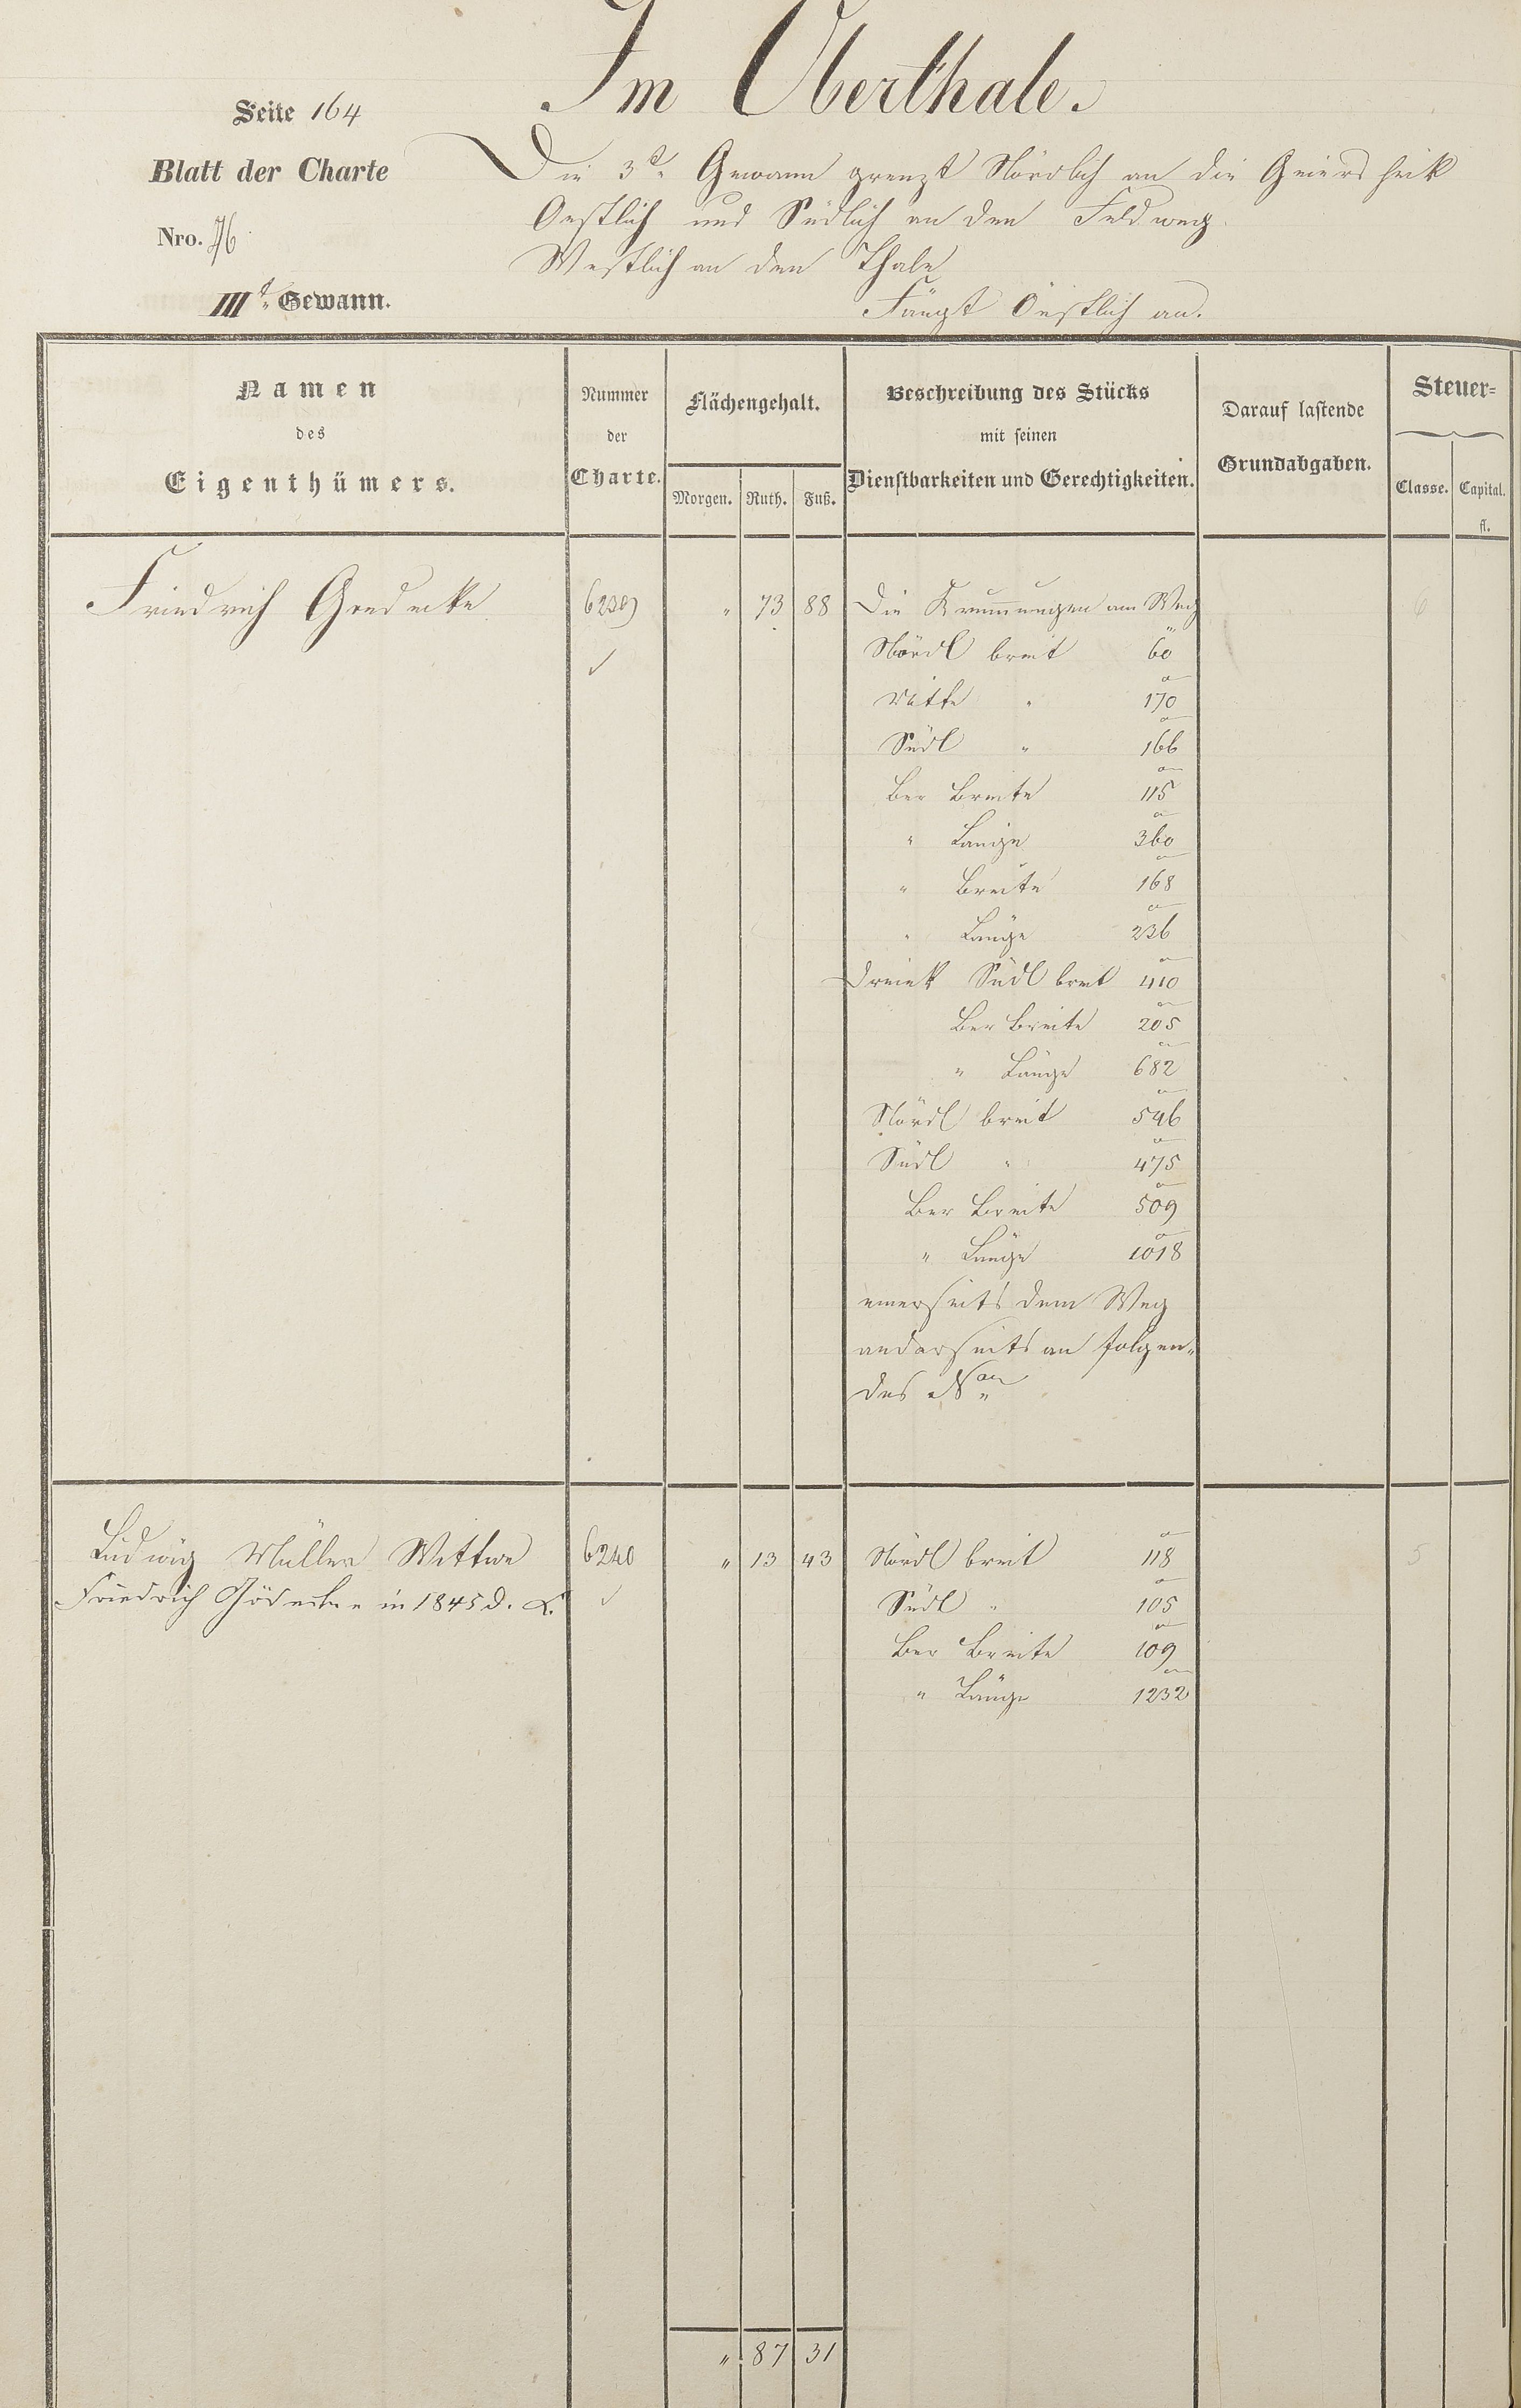 Im Oberthale.
Seite 164
Blatt der Charte
Nro. 76
IIIt. Gewann.
Die 3te Gewann grenzt Nördlich an die Geiershek
Oestlich und Südlich an den Feldweg.
Westlich an den Thale
Fängt Oestlich an.
Namen
des
Eigenthümers.
Nummer
der
Charte.
Flächengehalt.
Morgen. Ruth. Fuß.
Beschreibung des Stücks
mit seinen
Dienstbarkeiten und Gerechtigkeiten.
Darauf lastende
Grundabgaben.
Steuer-
Classe. Capital.
fl.
Friedrich Goedecke 6239 " 73 88 Die Krummungen am Weg 6
✓ Nördl breit 60
Mitte " 170
Südl " 166
Ber Breite 115
" Länge 360
" Breite 168
" Länge 236
Dreiek Südl breit 410
Ber Breite 205
" Länge 682
Nördl breit 546
Südl " 475
Ber Breite 509
" Länge 1018
einerseits dem Weg
anderseits an folgen-
des
Ludwig Müller Wittwe 6240 " 13 43 Nördl breit 118 5
Friedrich Gödecke in 1845 d. L. ✓ Südl " 105
Ber Breite 109
" Länge 1232
" 87 31